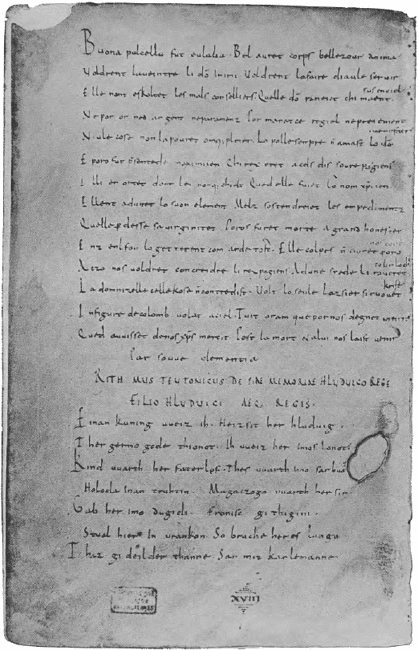 Buona pulcella fut eulalia. Bel auret corps bellezour anima
Voldrent la ueintre li dō inimi. Voldrent la faire diaule seruir
Elle nont eskoltet les mals conselliers. Quelle dō raneiet chi maent sus en ciel
Ne por or ned argent ne paramenz. Por manatce regiel ne preiement
Niule cose non la pouret omqi pleier. La polle sempre ñ amast lo dō menestier
E poro fut presentede maximiien. Chi rex eret a cels dis soure pagiens
Il li enortet dont lei nonq chielt. Qued elle fuiet lo nom xp̄iien
Ellent adunet lo suon element. Melz sostendreiet les empedementz
Quelle perdesse sa uirginitet. Poros furet morte a grand honestet
Enz enl fou la getterent com arde tost. Elle colpes ñ auret poro nos coist
Aczo nos uoldret concreidre li rex pagiens. Ad une spede li roueret tolir lo chief
La domnizelle celle kose ñ contredist. Volt lo seule lazsier si ruouet krist
In figure de colomb uolat a ciel. Tuit oram que por nos degnet preier
Qued auuisset de nos xp̄s mercit. Post la mort & a lui nos laist uenir
Par souue clementia
RITHMUS TEUTONICUS DE PIAE MEMORIAE HLUDUICO REGE
FILIO HLUDUICI AEQ; REGIS.
Einan kuning uueiz ih. Heizsit her hluduig.
Ther gerno gode thionot. Ih uueiz her imos lonot.
Kind uuarth her faterlos. Thes uuarth imo sar buoz
Holoda inan truhtin. Magaczogo uuarth her sin.
Gab her imo dugidi. Fronisc githigini.
Stual hier in urankon. So bruche her es lango
Thaz gideilder thanne. Sar mit karlemanne.
XVIII